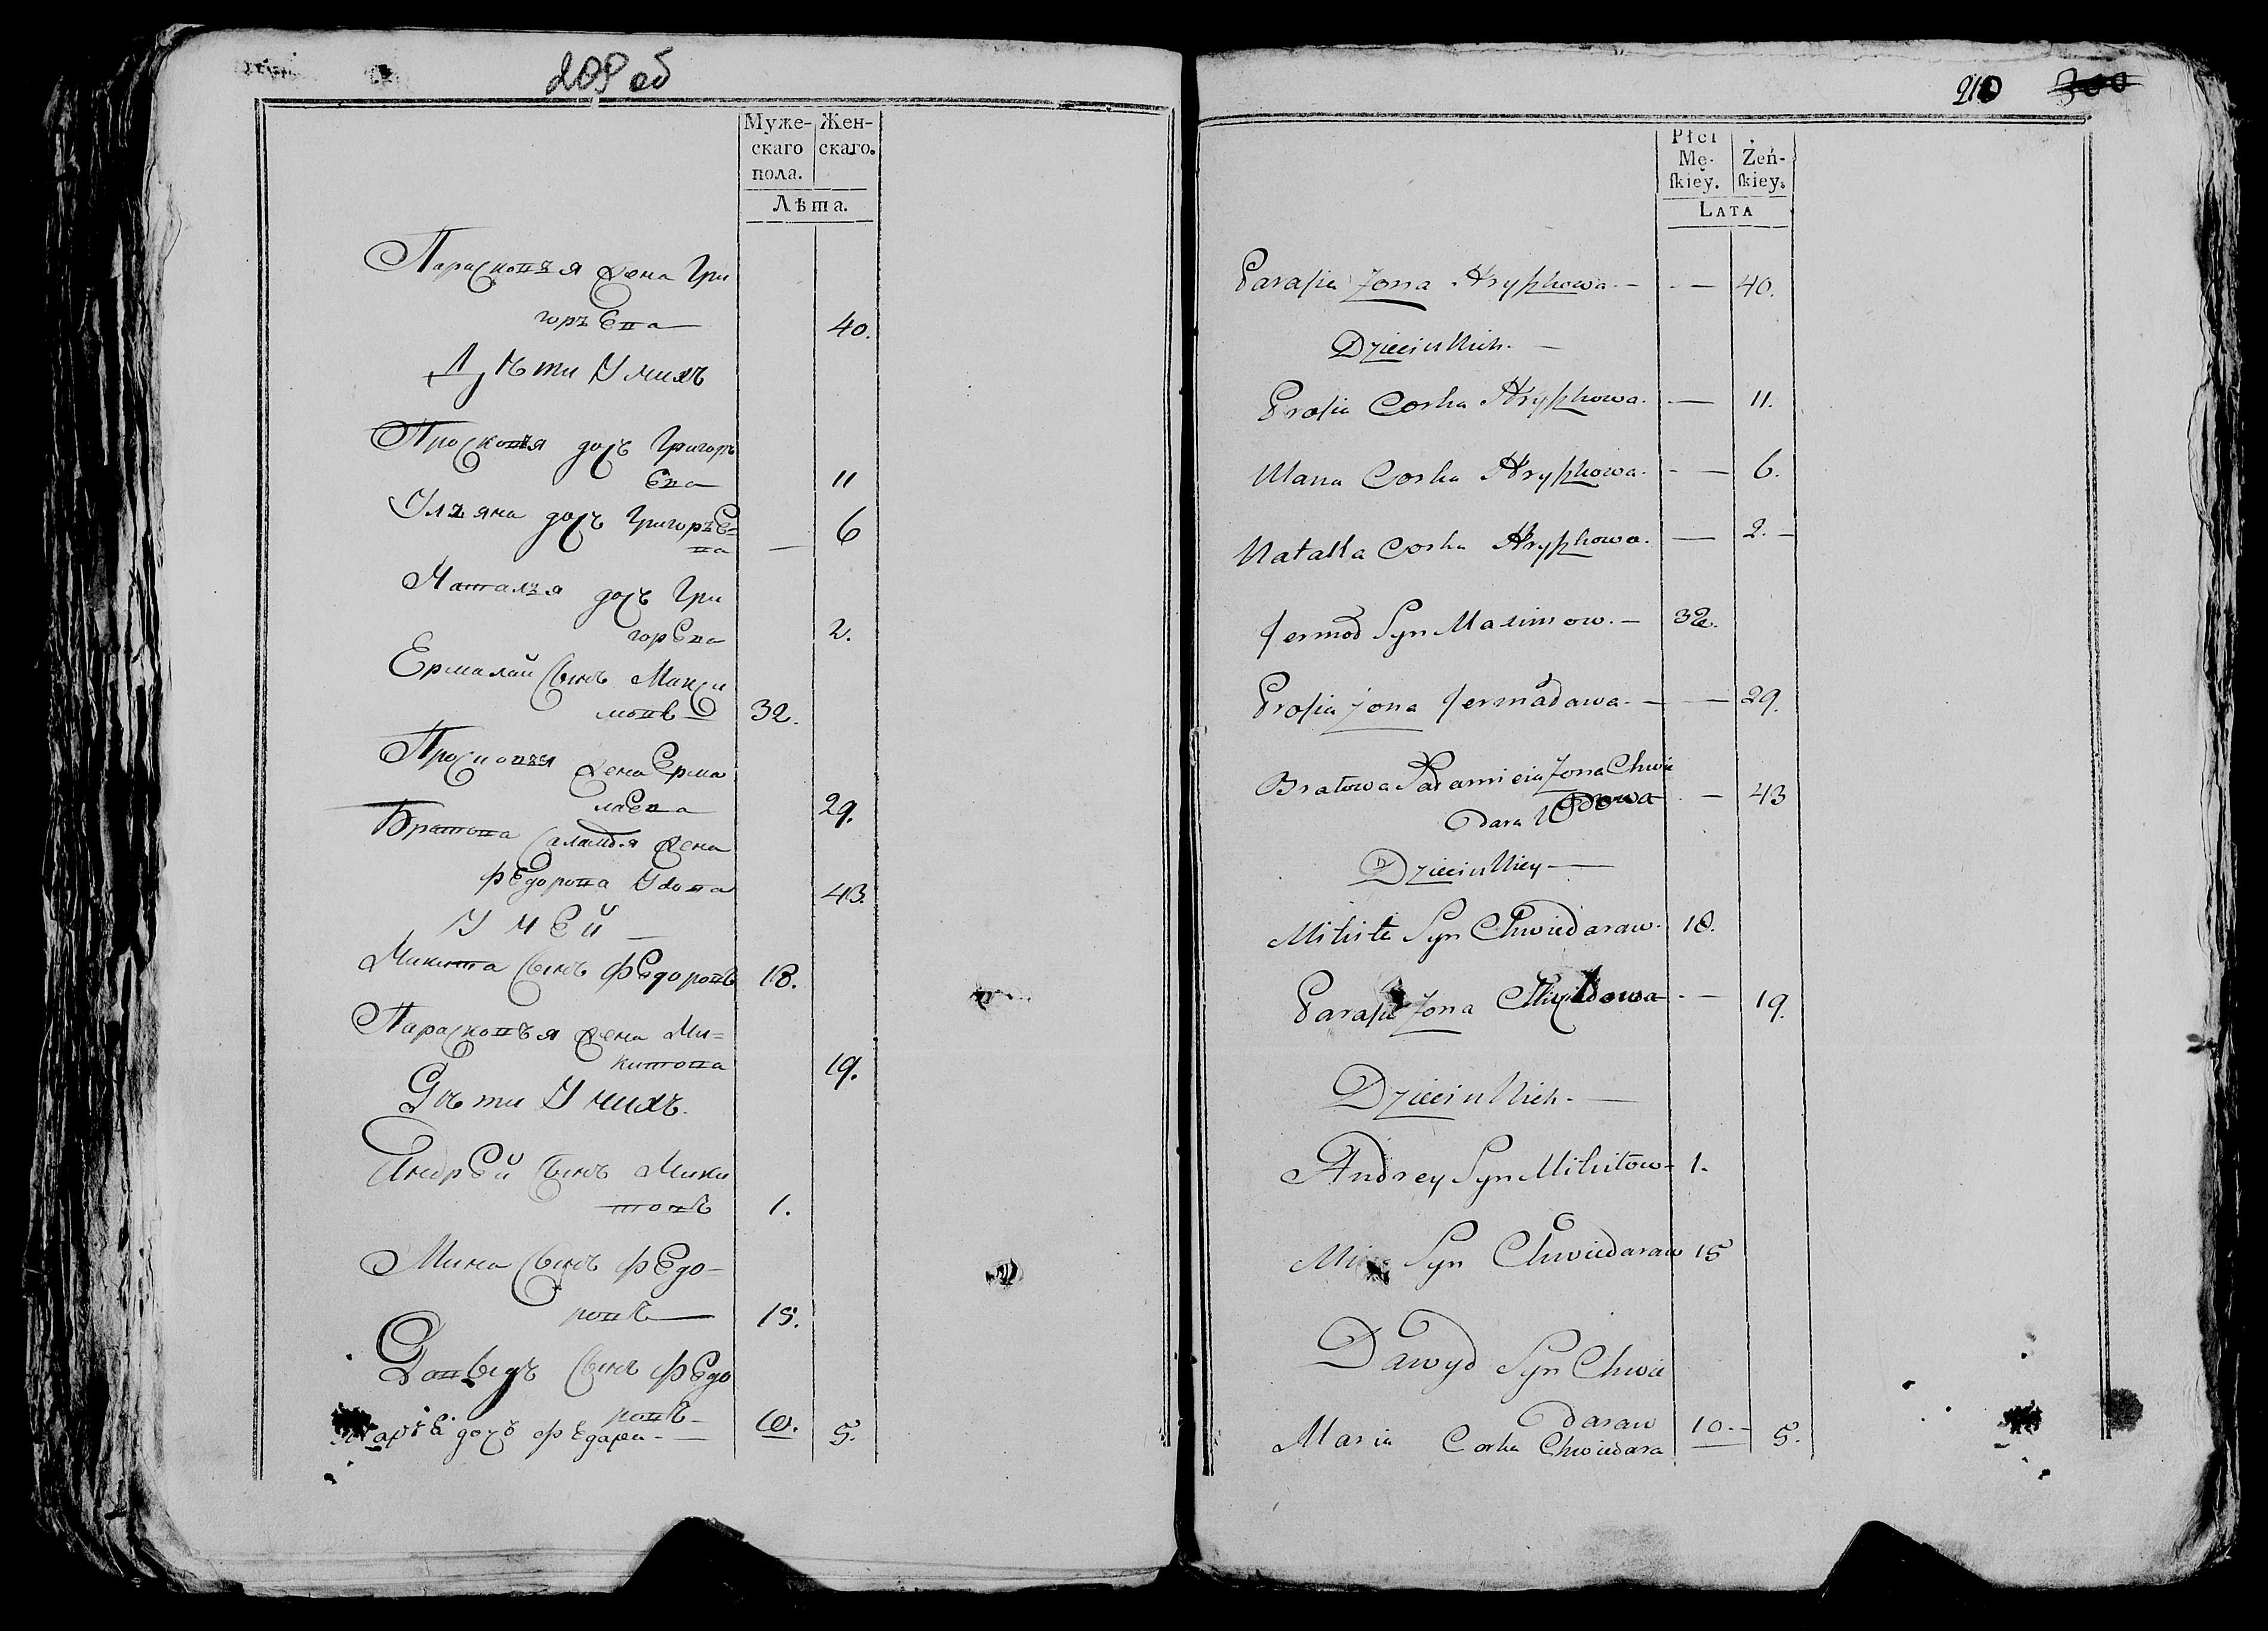 209 об
Муже-
скаго
пола.
Жен-
скаго.
Лѣта.
Параскопъя жена Гри
горъева 40.
Дѣти У нихъ
Проскопья дочь Григоръ
ева 11
Улъяна дочь Григоръе=
ва — 6
Наталъя дочь Гри
горева 2.
Ермалай Сынъ Макси
мовъ — 32.
Проскопъя жена Ерма
лаева 29.
Братова Саламея жена
Федорова Удова 43.
У ней —
Микита Сынъ Федоровъ 18.
Параскопъя жена Ми=
китова 19.
Дѣти У нихъ.
Андрей Сынъ Мики
товъ 1.
Мина Сынъ Федо-
ровъ — 15.
Давыдъ Сынъ Федо
ровъ — 10.
дочь Федара — 5.
210 300
Płci
Mę-
skiey.
Żeń-
skiey.
LATA
Parasia Zona Hryszkowa — - — 40.
Dzieci u Nich. —
Prosia Corka Hryszkowa. - — 11.
Ulana Corka Hryszkowa. - — 6.
Natalla Corka Hryszkowa. — 2. -
Jermoł Syn Maximow. — 32.
Prosia Zona Jermaławа. — — 29.
Bratowa Zona Chwie
dara Udowa - — 43
Dzieci u Niey —
Mikita Syn Chwiedaraw. 18.
Parasia Zona - — 19.
Dzieci u Nich. —
Andrey Syn Mikitow - 1.
Syn Chwiedaraw 15
Dawyd Syn Chwie
daraw 10. -
Maria Corka Chwiedara 5.